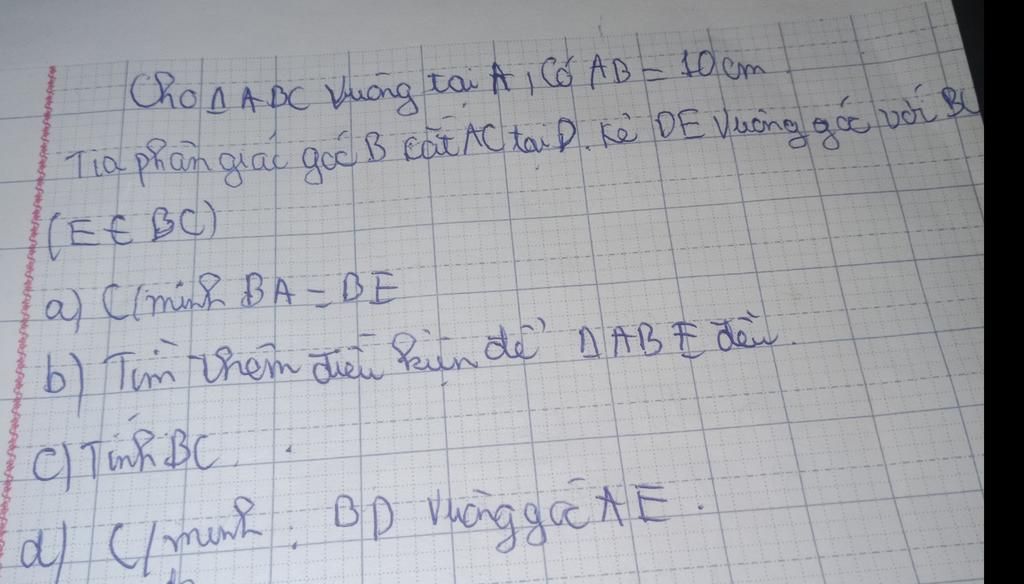 Cho Δ ABC vuông tại A, Có AB = 10cm
Tia phân giác góc B cắt AC tại D. Kẻ DE vuông góc với BC
(E ∈ BC)
a) C/minh BA = BE
b) Tìm thêm điều kiện để Δ ABE đều.
c) Tính BC.
d) C/minh. BD vuông góc AE.